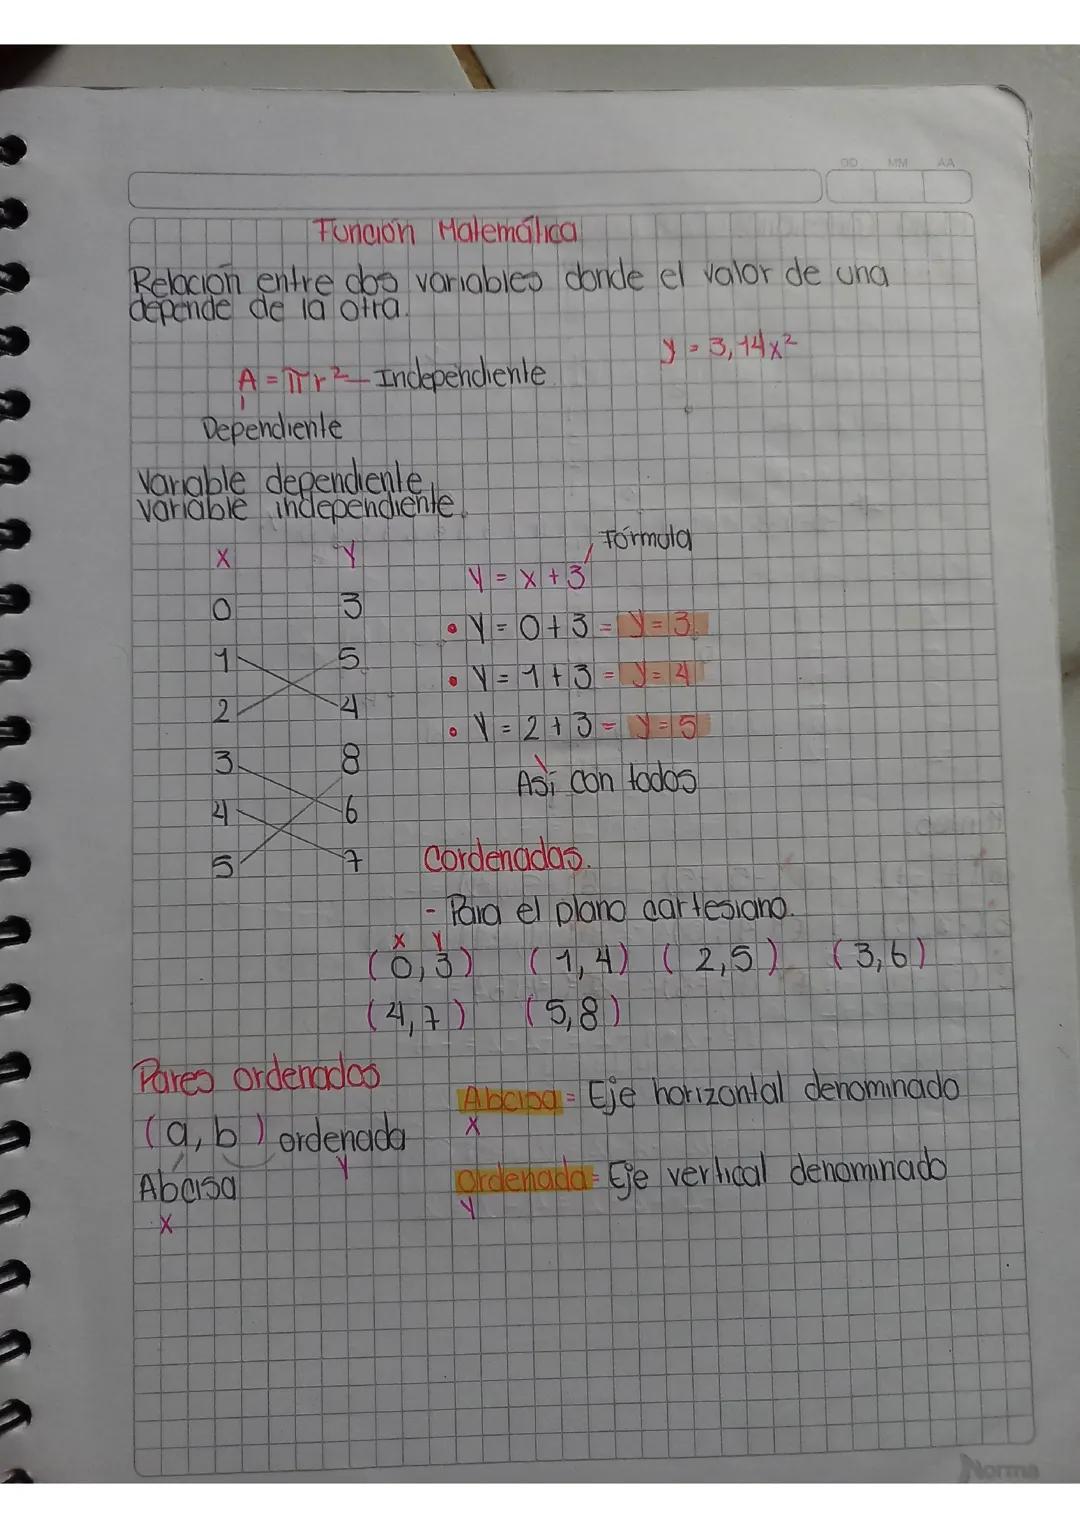 DD MM AA
Función Matemática
Relación entre dos variables donde el valor de una
depende de la otra.
y = 3,14x²
A = πr² — Independiente
Dependiente
Variable dependiente
variable independiente.
Fórmula
X Y
y = x + 3
0 3
• Y = 0 + 3 = y = 3
1 5
• Y = 1 + 3 = y = 4
2 4
• Y = 2 + 3 = y = 5
3 8
Así con todos
4 6
5 7
Cordenadas.
- Para el plano cartesiano.
X Y
(0,3) (1,4) (2,5) (3,6)
(4,7) (5,8)
Pares ordenados
Abcisa = Eje horizontal denominado
X
(a, b) ordenada
Y
Abcisa
X
Ordenada = Eje vertical denominado
Y
Norma